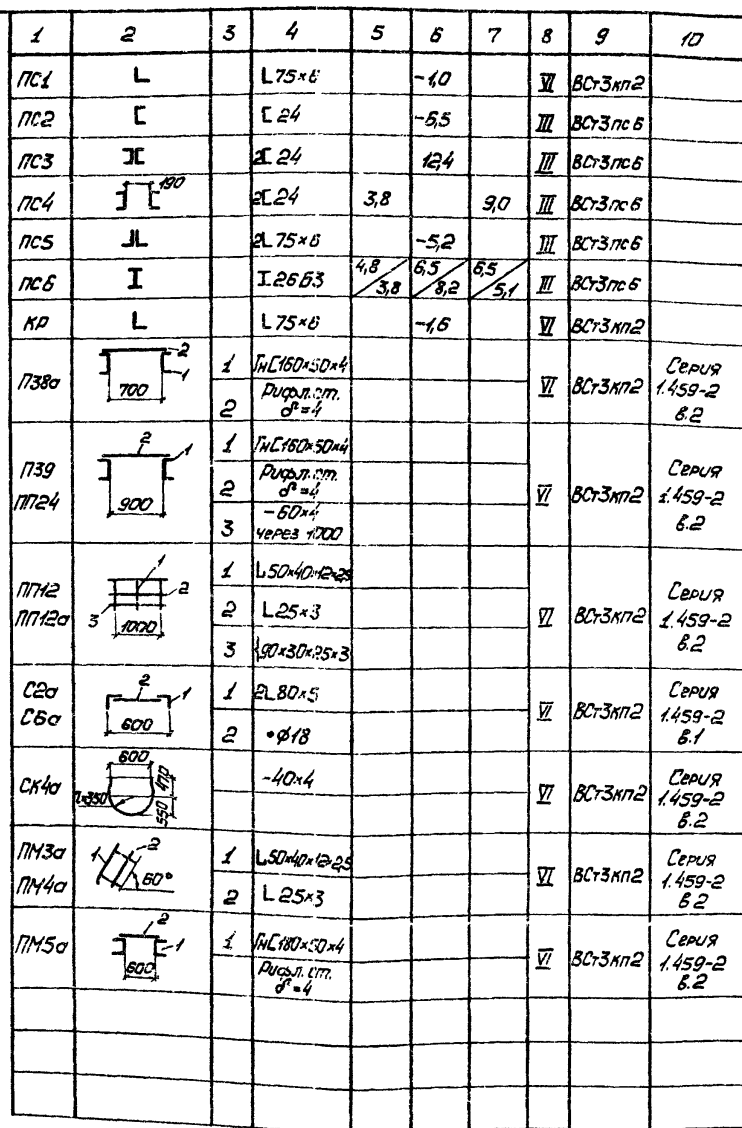 1 2 3 4 5 6 7 8 9 10
ПС1 L L75×6 -1,0 VI ВСт3кп2
ПС2 [ [24 -6,5 III ВСт3пс6
ПС3 ][ 2[24 12,4 III ВСт3пс6
ПС4 190 ] [ 2[24 3,8 9,0 III ВСт3пс6
ПС5 ⅃L 2L75×6 -5,2 III ВСт3пс6
ПС6 I I26Б3 4,8/3,8 6,5/8,2 6,5/5,1 III ВСт3пс6
КР L L75×6 -1,6 VI ВСт3кп2
П38а 2 1 700 1 ГнС160×50×4 VI ВСт3кп2 Серия 1.459-2 в.2
2 Рифл.ст. δ=4
П39 ПП24 2 1 900 1 ГнС160×50×4 VI ВСт3кп2 Серия 1.459-2 в.2
2 Рифл.ст. δ=4
3 -60×4 через 1000
ПП12 ПП12а 1 2 3 1000 1 L50×40×12×2,5 VI ВСт3кп2 Серия 1.459-2 в.2
2 L25×3
3 90×30×25×3
С2а С6а 2 1 600 1 2L80×5 VI ВСт3кп2 Серия 1.459-2 в.1
2 •ϕ18
СК4а 600 470 550 r=350 -40×4 VI ВСт3кп2 Серия 1.459-2 в.2
ПМ3а ПМ4а 1 2 60° 1 L50×40×12×2,5 VI ВСт3кп2 Серия 1.459-2 в.2
2 L25×3
ПМ5а 2 1 600 1 ГнС180×50×4 VI ВСт3кп2 Серия 1.459-2 в.2
Рифл.ст. δ=4